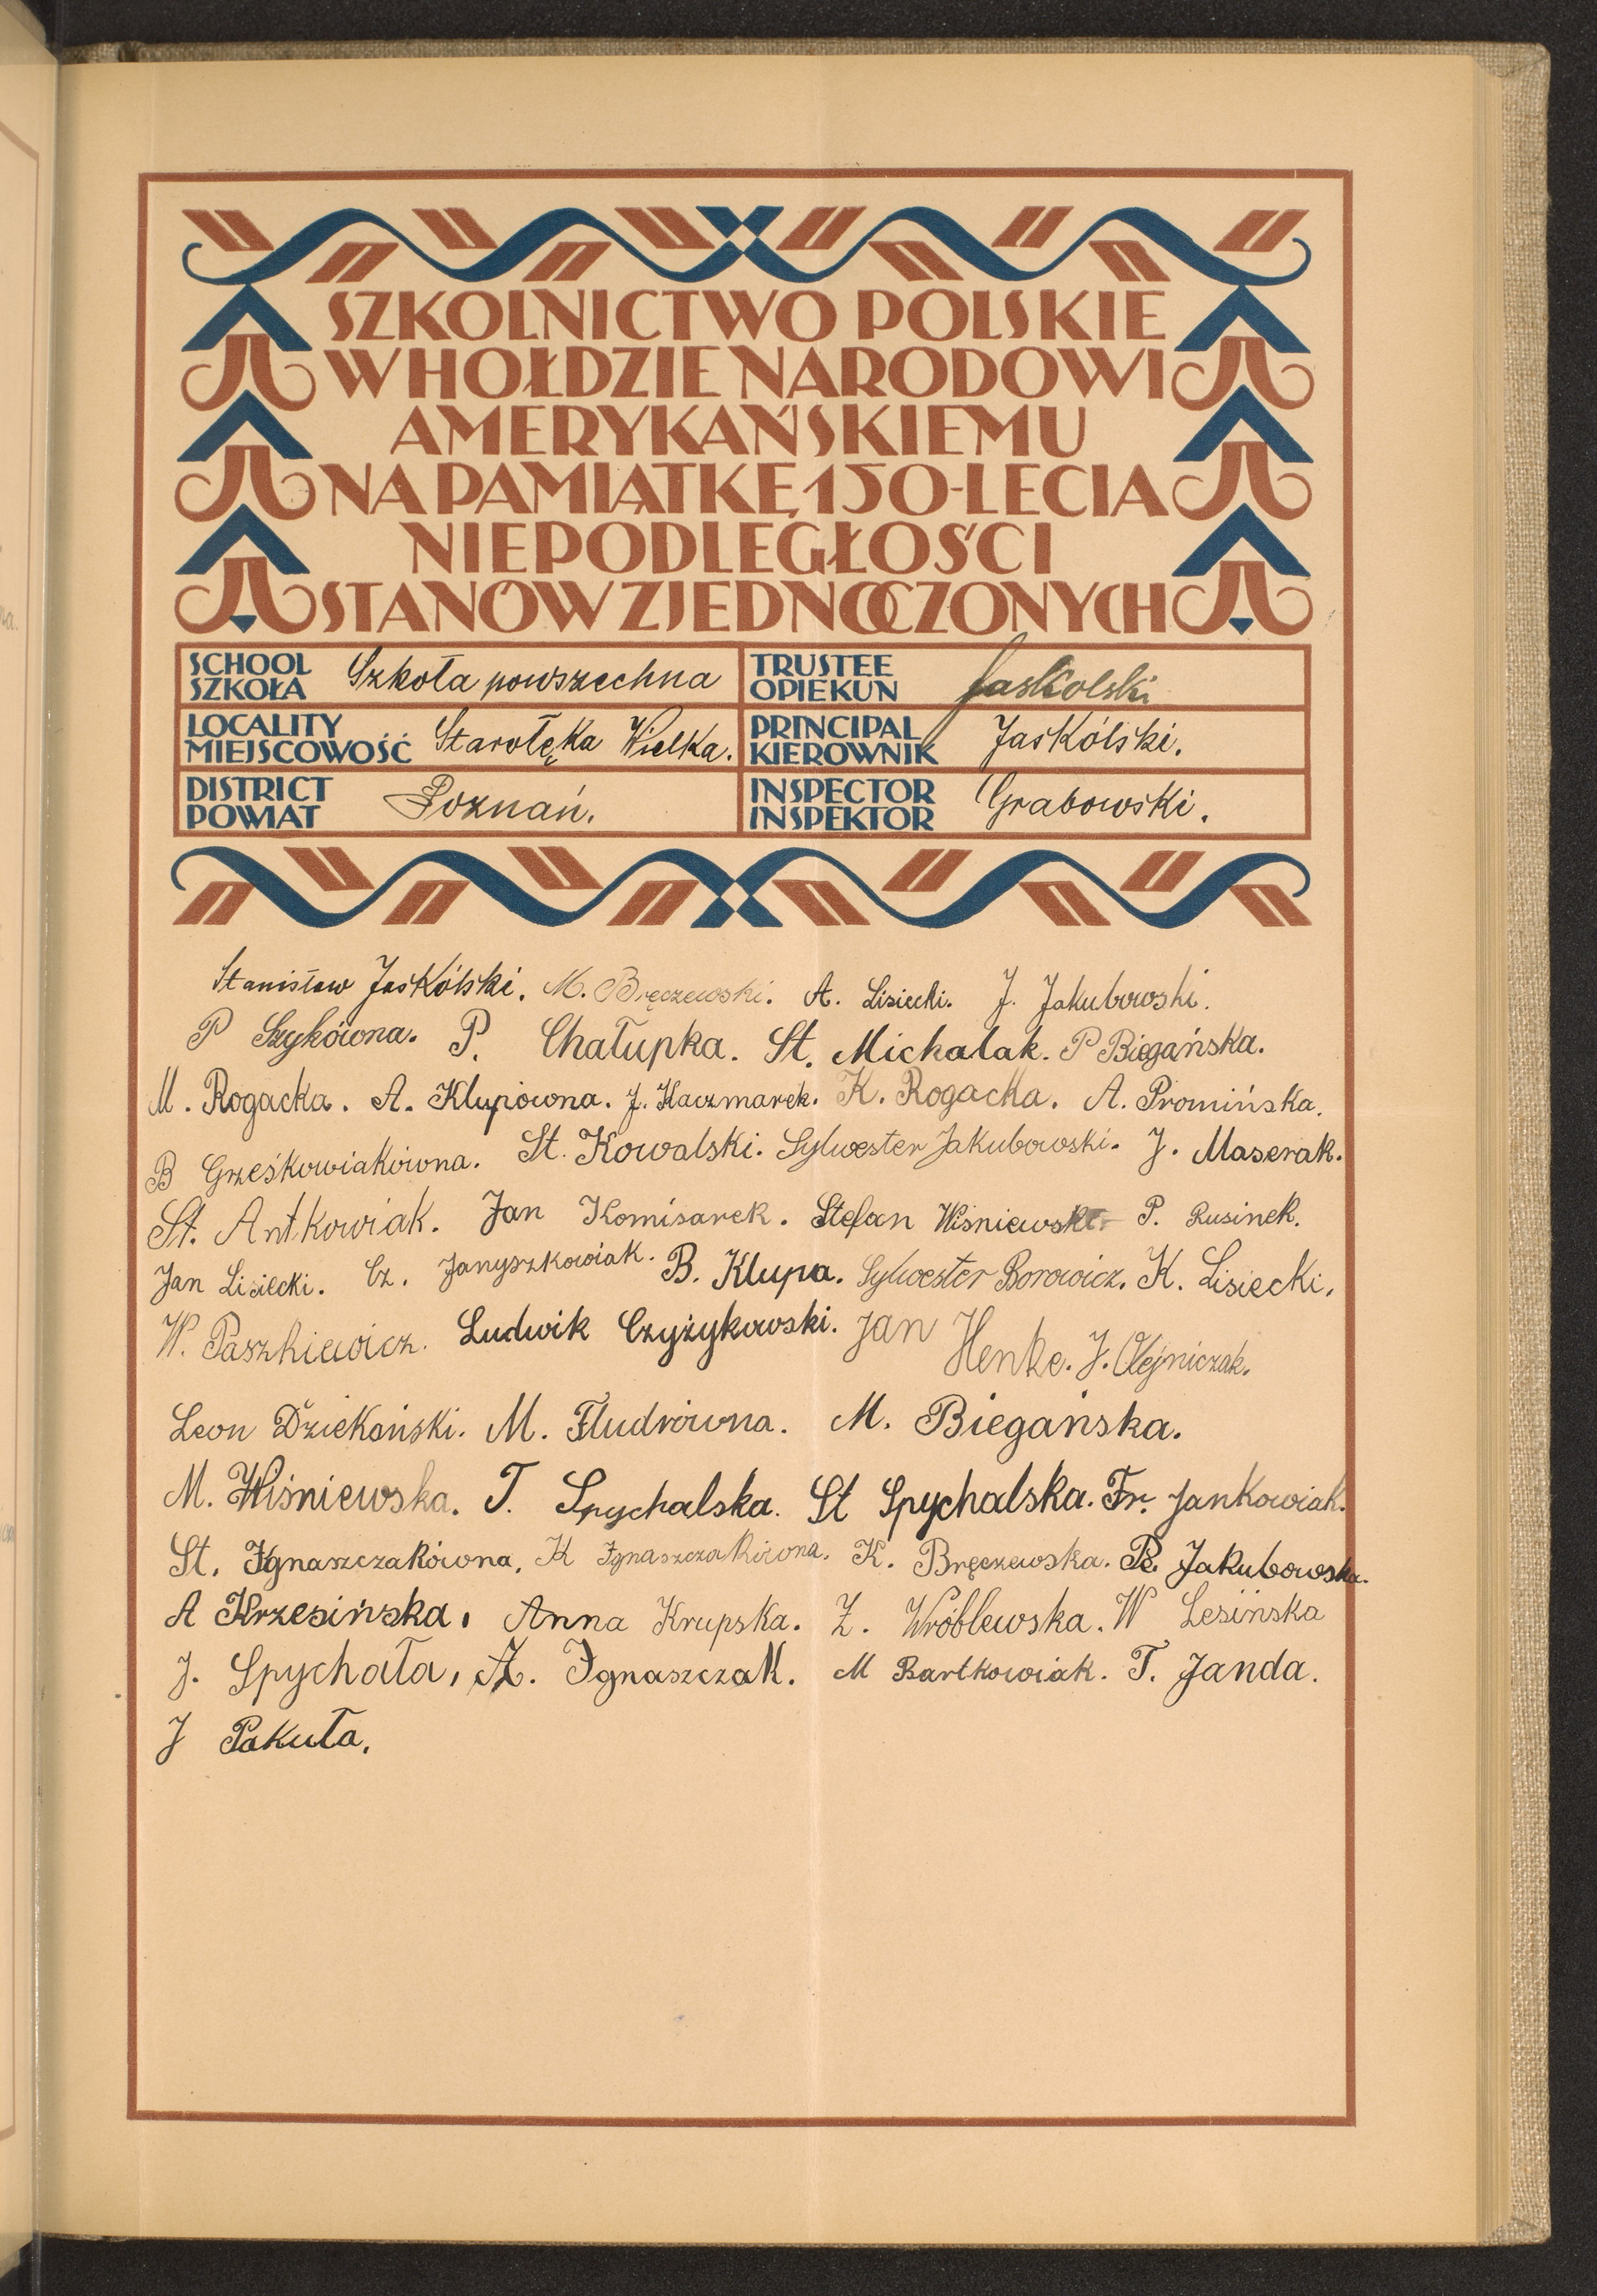 SZKOLNICTWO POLSKIE
W HOŁDZIE NARODOWI
AMERYKAŃSKIEMU
NA PAMIĄTKĘ 150-LECIA
NIEPODLEGŁOŚCI
STANÓW ZJEDNOCZONYCH
SCHOOL
SZKOŁA Szkoła powszechna
TRUSTEE
OPIEKUN Jaskolski
LOCALITY
MIEJSCOWOŚĆ Starołęka Wielka.
PRINCIPAL
KIEROWNIK Jaskólski.
DISTRICT
POWIAT Poznań.
INSPECTOR
INSPEKTOR Grabowski.
Stanisław Jaskólski. M. Bręczewski. A. Lisiecki. J. Jakubowski.
P Szykówna. P. Chałupka. St. Michalak. P Biegańska.
M. Rogacka. A. Klupówna. J. Kaczmarek. K. Rogacka. A. Promińska.
B Grześkowiakówna. St. Kowalski. Sylwester Jakubowski. J. Maserak.
St. Antkowiak. Jan Komisarek. Stefan Wiśniewski. P. Rusinek.
Jan Lisiecki. Cz. Janyszkowiak. B. Klupa. Sylwester Borowicz. K. Lisiecki.
W. Paszkiewicz. Ludwik Czyżykowski. Jan Henke. J. Olejniczak.
Leon Dziekański. M. Fludrówna. M. Biegańska.
M. Wiśniewska. T. Spychalska. St Spychalska. Fr. Jankowiak.
St. Ignaszczakówna. K Ignaszczakówna. K. Bręczewska. Jakubowska.
A Krzesińska. Anna Krupska. Z. Wróblewska. W Lesińska
J. Spychała, Ignaszczak. M Bartkowiak. T. Janda.
J Pakuła.